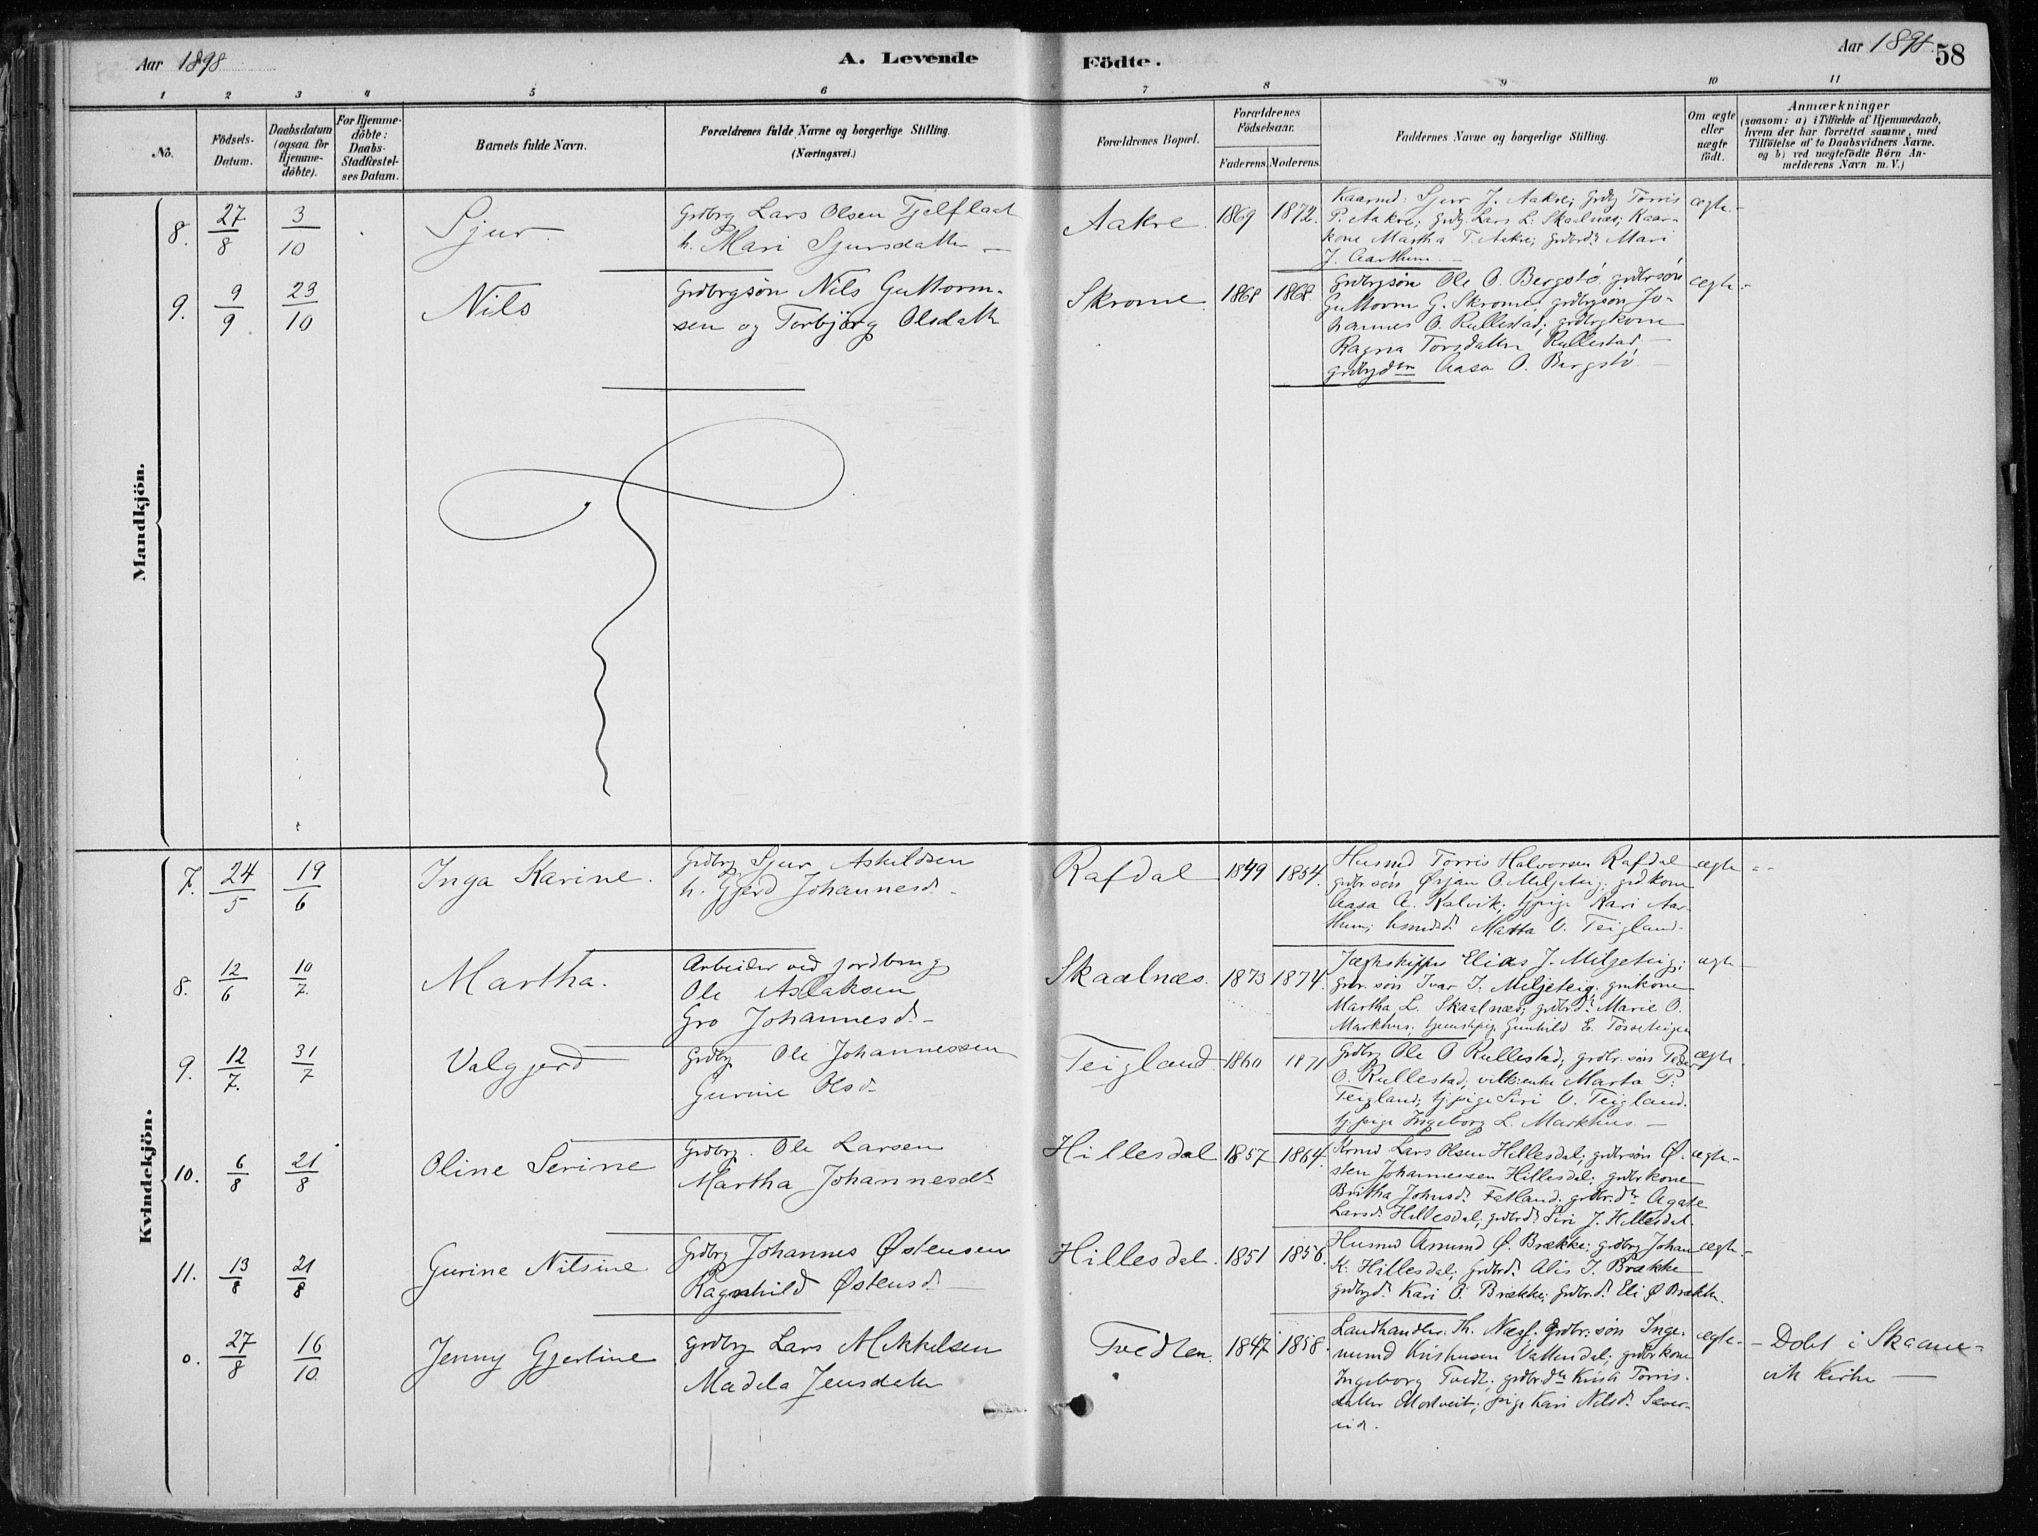 Aar 1898
A. Levende
Födte.
Aar 1898.
58
1 2 3 4 5 6 7 8 9 10 11
No.
Födsels-Datum.
Daabsdatum (ogsaa for Hjemme-döbte).
For Hjemme-döbte: Daabs-Stadfæstel-ses Datum.
Barnets fulde Navn.
Forældrenes fulde Navne og borgerlige Stilling.
(Næringsvei.)
Forældrenes Bopæl.
Forældrenes Födselsaar.
Faderens. Moderens.
Faddernes Navne og borgerlige Stilling.
Om ægte eller uægte födt.
Anmærkninger
(saasom: a) i Tilfælde af Hjemmedaab,
hvem der har forrettet samme, med
Tilföielse af to Daabsvidners Navne.
og b) ved uægtefödte Börn An-
melderens Navn m. V.)
Mandkjön.
8. 27/8 3/10 Sjur.
Grdbrg Lars Olsen Fjelflaat
h. Mari Sjursdatter
Aakre. 1869 1872.
Kaarmd: Sjur J. Aakre; Grdbg Torris
P. Aakre; grdbg. Lars L. Skaalnæs; Kaar-
kone Martha T. Aakre; grdbrd. Mari
J. Aarthun.
ægte.
9. 9/9 23/10 Nils
Grdbrgsön Nils Guttorm-
sen og Torbjörg Olsdatter
Skromme. 1868 1868.
Grdbrgsön Ole O. Bergstö grdbrsön
Guttorm G. Skromme, grdbrgsön Jo-
hannes O. Rullestad; grdbrgkone
Ragna Torsdatter Rullestad
grdbrgdtr Aasa O. Bergstö.
ægte.
Kvindekjön.
7. 24/5 19/6 Inga Karine.
Grdbrg Sjur Askildsen
h. Gjerd Johannesd.
Rafdal 1849 1854.
Husmd Torris Halvorsen Rafdal
grdbr.sön Örjan O. Miljeteig; grdkone
Aasa A. Kalvik; tj.pige Kari Aar-
thun; husmdd. Marta O. Teigland.
ægte
8. 12/6 10/7. Martha.
Arbeider ved jordbrug
Ole Aslaksen
Gro Johannesd.
Skaalnæs. 1873 1874.
Jægtskipper Elias J. Miljeteig;
grbr.sön Ivar I. Miljeteig. grdkone
Martha L. Skaalnæs; grdbrd. Marie O.
Markhus; tjenstpig. Gunhild E.
ægte
9. 12/7. 31/7 Valgjerd
Grdbrg Ole Johannessen
Gurine Olsd.
Teigland. 1860 1871
Grdbrg Ole O Rullestad; grdbr.sön Peder
O. Rullestad; Marta P.
Teigland; tj.pige Siri O. Teigland.
tj.pige Ingeborg L. Markhus.
ægte.
10. 6/8 21/8 Oline Serine
Grdbrg. Ole Larsen
Martha Johannesdtr
Hillesdal 1857 1864.
Lars Olsen Hillesdal; grdbrsön Ø-
sten Johannessen Hillesdal; grdbrkone
Britha Johnsd. Fatland; grdbr.dtr Agate
Larsd. Hillesdal; grdbrd. Siri J. Hillesdal.
ægte
11. 13/8 21/8 Gurine Nilsine
Grdbrg Johannes Østensen
Ragnhild Østensd.
Hillesdal. 1851 1856.
Husmd Amund Ø. Brække; grdbrg Johan
K. Hillesdal; grdbrd. Alis I. Brække
grdbrgd. Kari O. Brække; grdbr.d. Eli Ø Brække.
ægte
0. 27/8 16/10 Jenny Gjertine
grdbrg Lars Mikkelsen
Madela Jensdatter
Tvedten. 1847 1858.
Landhandler Th. Næss. Grdbr.sön Inge-
mund Kristensen Vattendal; grdbrkone
Ingeborg Tvedt; grdbr.dtr Krista Torris-
datter Mortveit; pige Kari Nilsd. Sæver-
eid.
ægte.
Döbt i Skaane-
vik Kirke